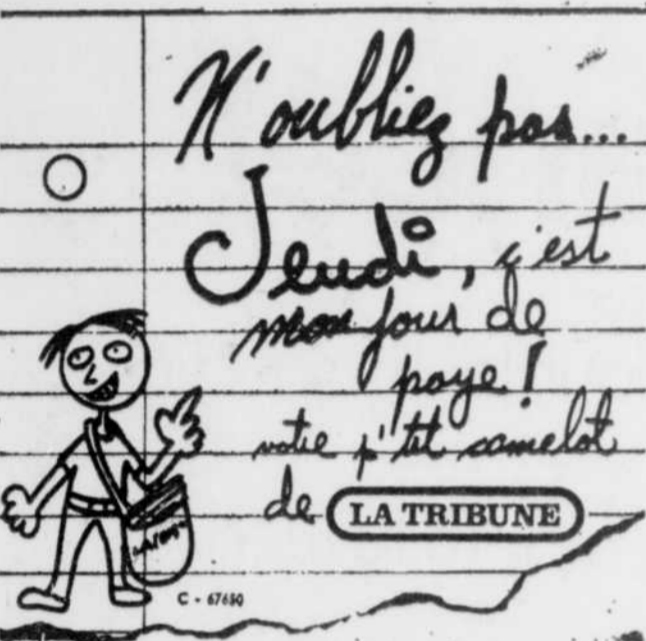 N'oubliez pas...
Jeudi, c'est
mon jour de
paye!
votre p'tit camelot
de LA TRIBUNE
C - 67680